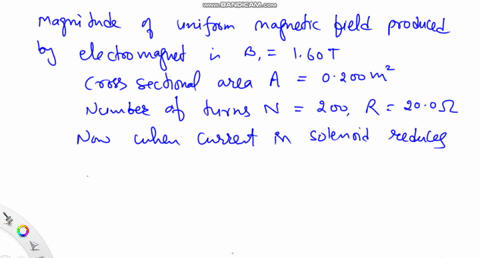 WWW.BANDICAM.COM
Magnitude of uniform magnetic field produced
by electromagnet is B₁ = 1.60T
Cross sectional area A = 0.200m²
Number of turns N = 200, R = 20.0Ω
Now when current in solenoid reduces